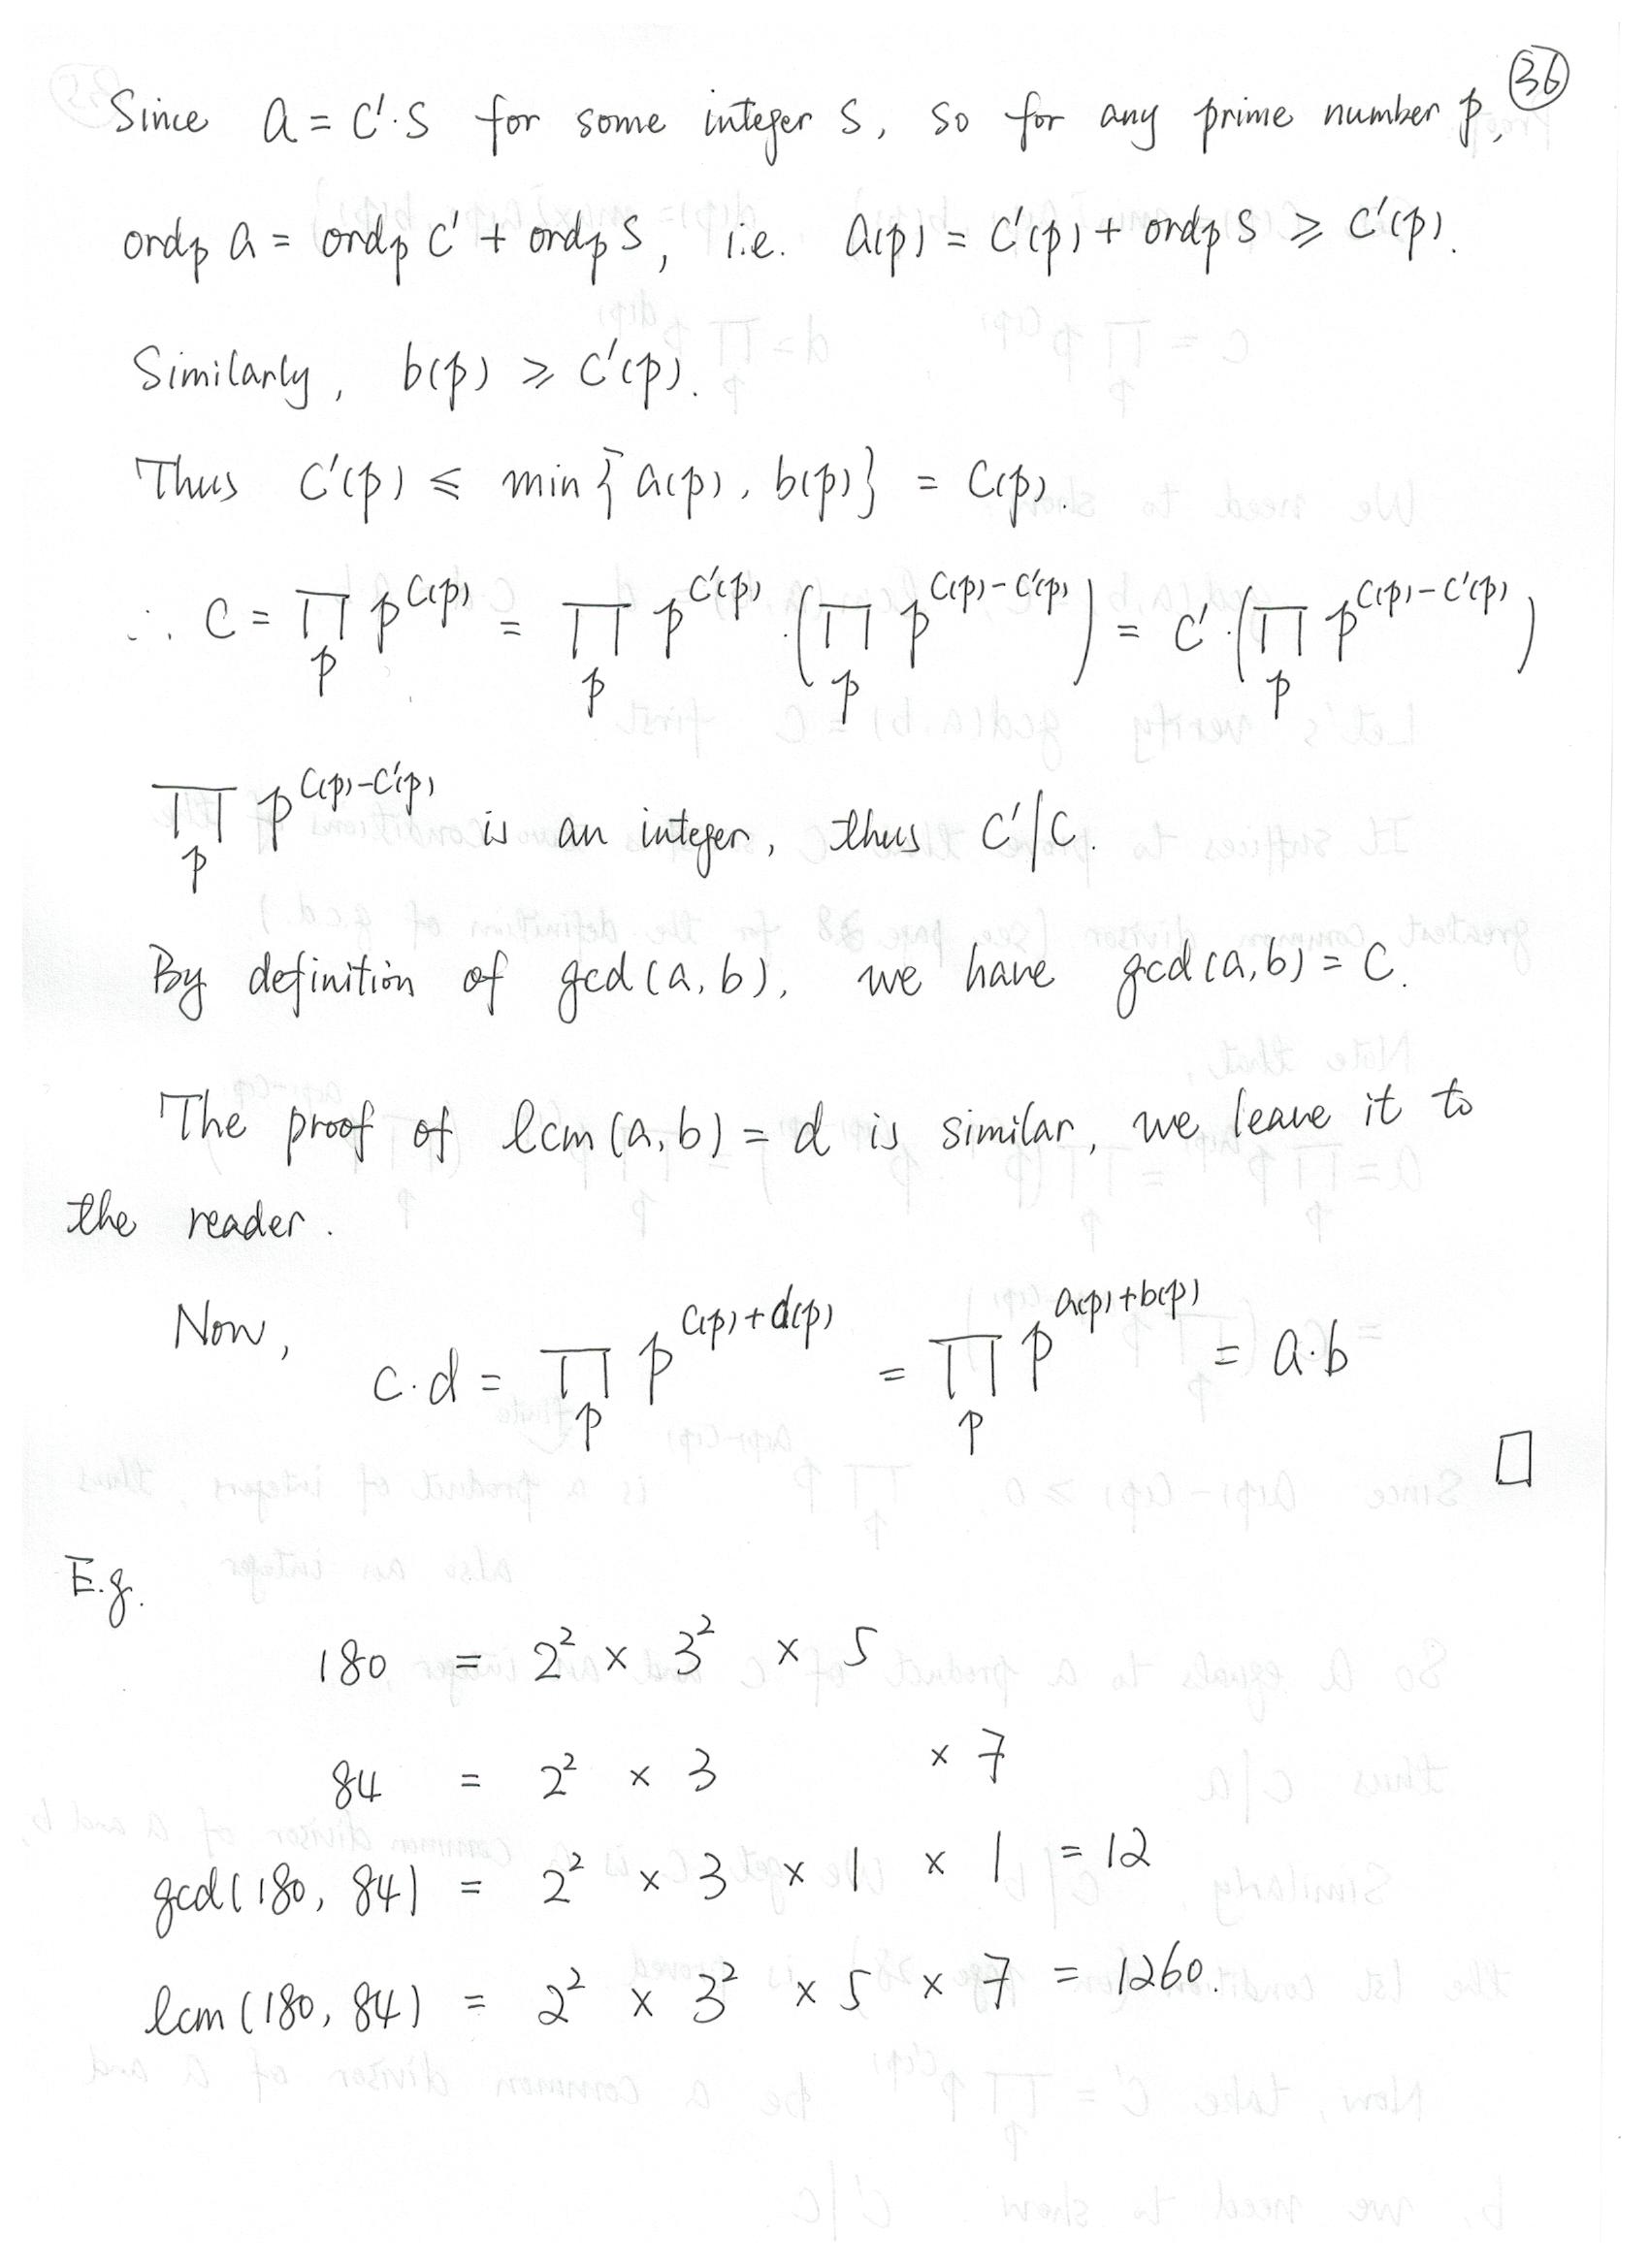 36
Since a = c'·s for some integer s, so for any prime number p,
ord_p a = ord_p c' + ord_p s, i.e. a(p) = c'(p) + ord_p s ⩾ c'(p).
Similarly, b(p) ⩾ c'(p).
Thus c'(p) ⩽ min{a(p), b(p)} = c(p).
∴ c = ∏_p p^{c(p)} = ∏_p p^{c'(p)} · (∏_p p^{c(p)-c'(p)}) = c'·(∏_p p^{c(p)-c'(p)})
∏_p p^{c(p)-c'(p)} is an integer, thus c'|c.
By definition of gcd(a,b), we have gcd(a,b) = c.
The proof of lcm(a,b) = d is similar, we leave it to
the reader.
Now, c·d = ∏_p p^{c(p)+d(p)} = ∏_p p^{a(p)+b(p)} = a·b
□
E.g.
180 = 2² × 3² × 5
84 = 2² × 3 × 7
gcd(180, 84) = 2² × 3 × 1 × 1 = 12
lcm(180, 84) = 2² × 3² × 5 × 7 = 1260.